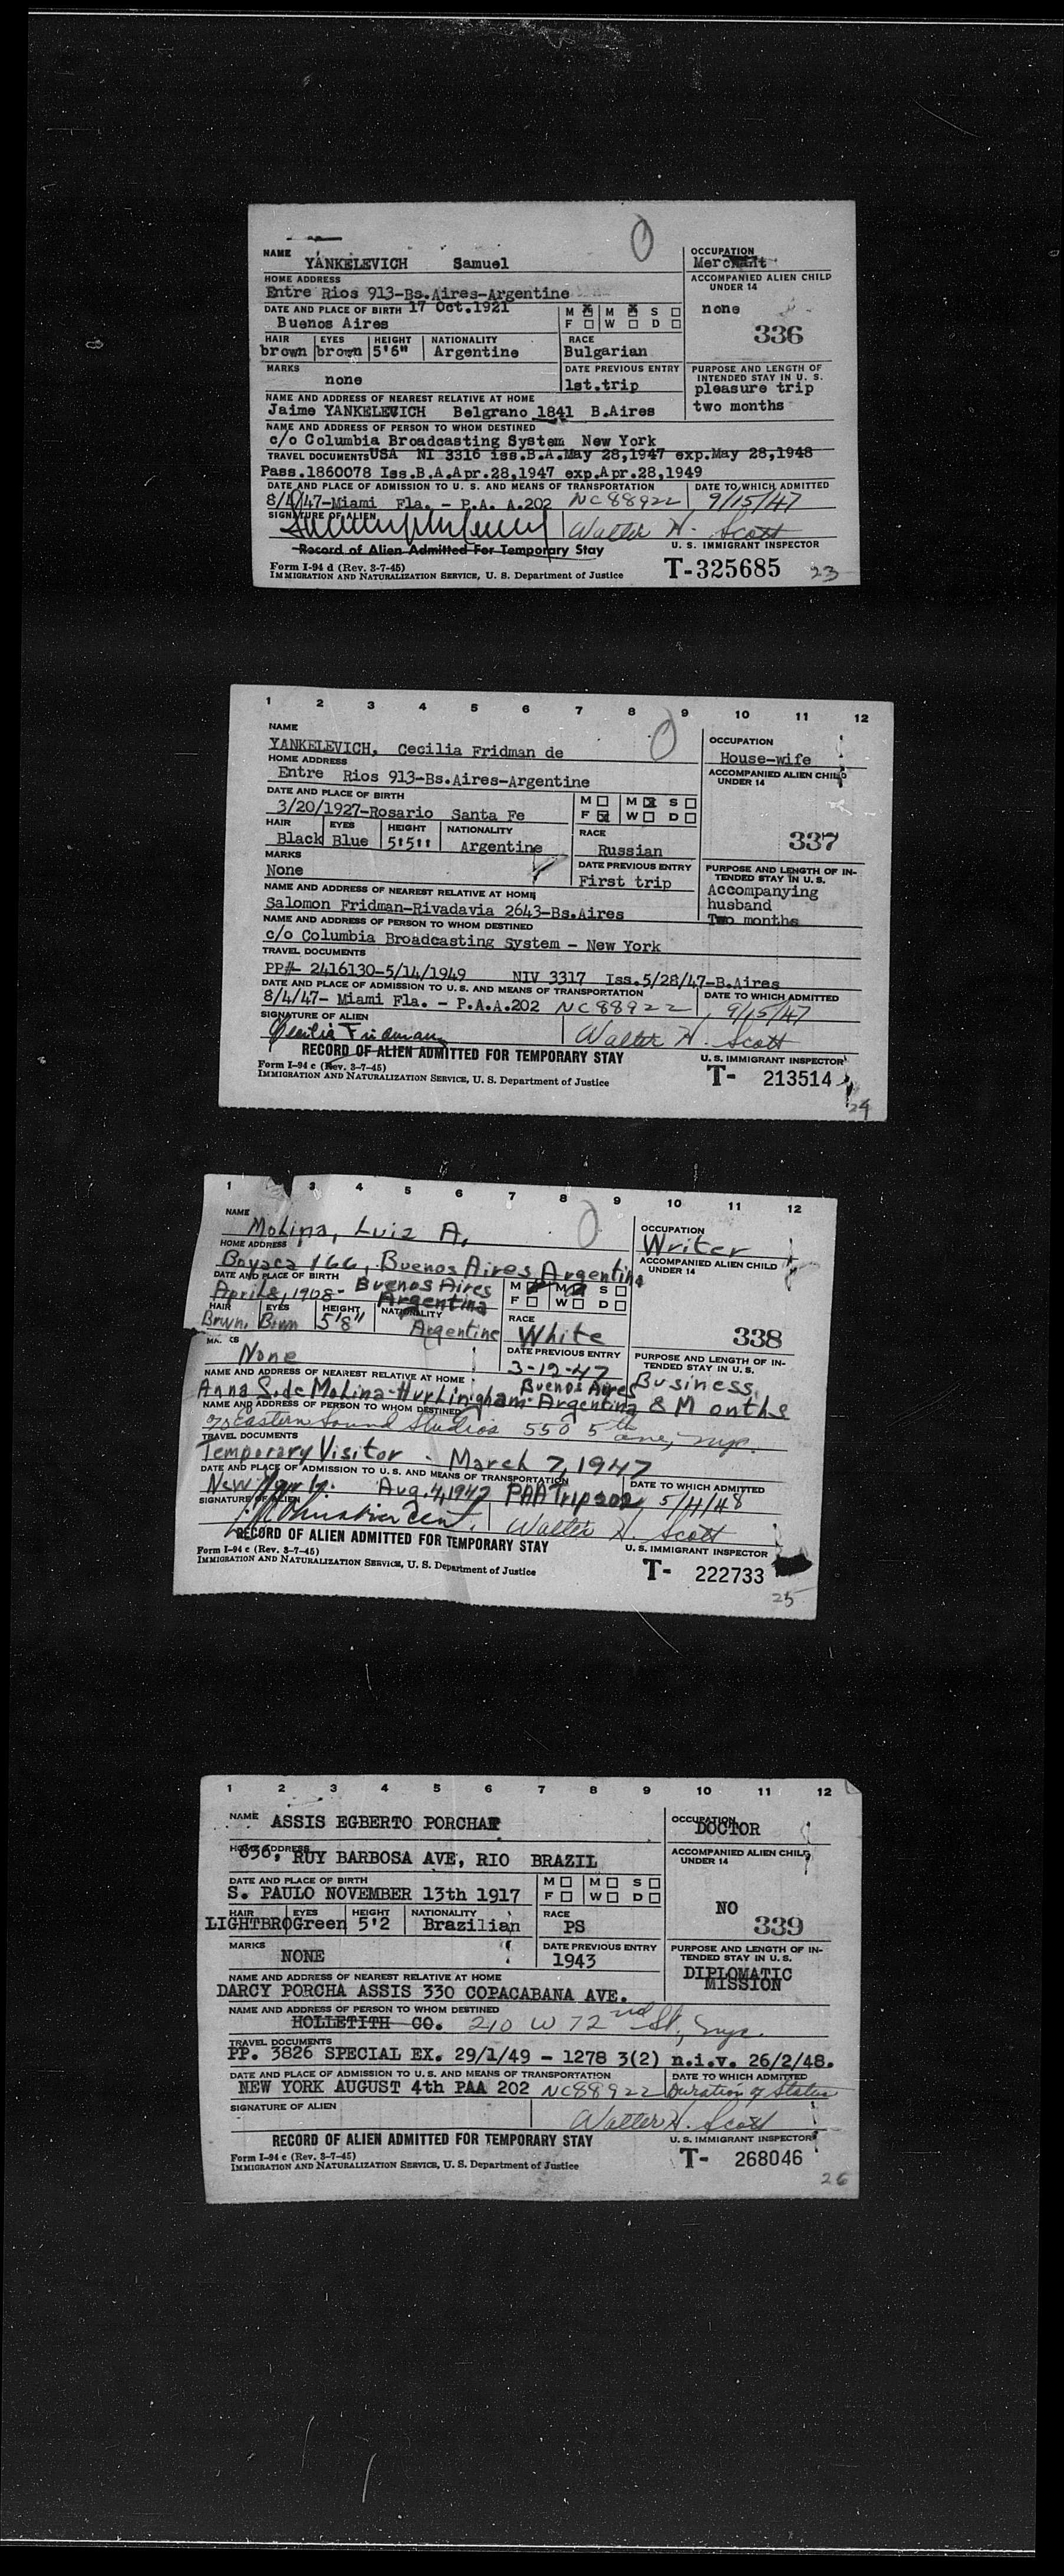 NAME YANKELEVICH Samuel
OCCUPATION
Merchant
HOME ADDRESS
Entre Rios 913-Bs.Aires-Argentine
ACCOMPANIED ALIEN CHILD UNDER 14
none
336
DATE AND PLACE OF BIRTH 17 Oct.1921
Buenos Aires
M M S
F W D
HAIR EYES HEIGHT NATIONALITY RACE
brown brown 5'6" Argentine Bulgarian
MARKS
none
DATE PREVIOUS ENTRY
1st.trip
PURPOSE AND LENGTH OF INTENDED STAY IN U. S.
pleasure trip
two months
NAME AND ADDRESS OF NEAREST RELATIVE AT HOME
Jaime YANKELEVICH Belgrano 1841 B.Aires
NAME AND ADDRESS OF PERSON TO WHOM DESTINED
c/o Columbia Broadcasting System New York
TRAVEL DOCUMENTS USA NI 3316 iss.B.A.May 28,1947 exp.May 28,1948
Pass.1860078 Iss.B.A.Apr.28,1947 exp.Apr.28,1949
DATE AND PLACE OF ADMISSION TO U. S. AND MEANS OF TRANSPORTATION DATE TO WHICH ADMITTED
8/4/47-Miami Fla. - P.A. A.202 NC88922 9/15/47
SIGNATURE OF ALIEN
Walter H. Scott
Record of Alien Admitted For Temporary Stay
U. S. IMMIGRANT INSPECTOR
Form I-94 d (Rev. 3-7-45)
IMMIGRATION AND NATURALIZATION SERVICE, U. S. Department of Justice
T-325685
23
1 2 3 4 5 6 7 8 9 10 11 12
NAME
YANKELEVICH, Cecilia Fridman de
OCCUPATION
House-wife
HOME ADDRESS
Entre Rios 913-Bs.Aires-Argentine
ACCOMPANIED ALIEN CHILD UNDER 14
337
DATE AND PLACE OF BIRTH
3/20/1927-Rosario Santa Fe
M M S
F W D
HAIR EYES HEIGHT NATIONALITY RACE
Black Blue 5'5" Argentine Russian
MARKS
None
DATE PREVIOUS ENTRY
First trip
PURPOSE AND LENGTH OF INTENDED STAY IN U. S.
Accompanying
husband
Two months
NAME AND ADDRESS OF NEAREST RELATIVE AT HOME
Salomon Fridman-Rivadavia 2643-Bs.Aires
NAME AND ADDRESS OF PERSON TO WHOM DESTINED
c/o Columbia Broadcasting System - New York
TRAVEL DOCUMENTS
PP#- 2416130-5/14/1949 NIV 3317 Iss.5/28/47-B.Aires
DATE AND PLACE OF ADMISSION TO U. S. AND MEANS OF TRANSPORTATION DATE TO WHICH ADMITTED
8/4/47- Miami Fla. - P.A.A.202 NC88922 9/15/47
SIGNATURE OF ALIEN
Cecilia Fridman Walter H. Scott
RECORD OF ALIEN ADMITTED FOR TEMPORARY STAY
U. S. IMMIGRANT INSPECTOR
Form I-94 c (Rev. 3-7-45)
IMMIGRATION AND NATURALIZATION SERVICE, U. S. Department of Justice
T- 213514
24
1 3 4 5 6 7 8 9 10 11 12
NAME
Molina, Luiz A.
OCCUPATION
Writer
HOME ADDRESS
Boyaca 166, Buenos Aires Argentina
ACCOMPANIED ALIEN CHILD UNDER 14
338
DATE AND PLACE OF BIRTH Buenos Aires
April 8, 1908- Argentina
M M S
F W D
HAIR EYES HEIGHT NATIONALITY RACE
Brwn. Brwn 5'8" Argentine White
MARKS
None
DATE PREVIOUS ENTRY
3-12-47
PURPOSE AND LENGTH OF INTENDED STAY IN U. S.
Business
8 Months
NAME AND ADDRESS OF NEAREST RELATIVE AT HOME Buenos Aires
Anna S. de Molina-Hurlingham-Argentina
NAME AND ADDRESS OF PERSON TO WHOM DESTINED
c/o Eastern Sound Studios 550 5th ave, nyc.
TRAVEL DOCUMENTS
Temporary Visitor - March 7, 1947
DATE AND PLACE OF ADMISSION TO U. S. AND MEANS OF TRANSPORTATION DATE TO WHICH ADMITTED
New York. Aug. 4, 1947 PAA Trip 202 5/4/48
SIGNATURE OF ALIEN
Walter H. Scott
RECORD OF ALIEN ADMITTED FOR TEMPORARY STAY
U. S. IMMIGRANT INSPECTOR
Form I-94 c (Rev. 3-7-45)
IMMIGRATION AND NATURALIZATION SERVICE, U. S. Department of Justice
T- 222733
25
1 2 3 4 5 6 7 8 9 10 11 12
NAME ASSIS EGBERTO PORCHAT
OCCUPATION
DOCTOR
HOME ADDRESS
636, RUY BARBOSA AVE, RIO BRAZIL
ACCOMPANIED ALIEN CHILD UNDER 14
NO
339
DATE AND PLACE OF BIRTH
S. PAULO NOVEMBER 13th 1917
M M S
F W D
HAIR EYES HEIGHT NATIONALITY RACE
LIGHTBRO Green 5'2 Brazilian PS
MARKS
NONE
DATE PREVIOUS ENTRY
1943
PURPOSE AND LENGTH OF INTENDED STAY IN U. S.
DIPLOMATIC
MISSION
NAME AND ADDRESS OF NEAREST RELATIVE AT HOME
DARCY PORCHA ASSIS 330 COPACABANA AVE.
NAME AND ADDRESS OF PERSON TO WHOM DESTINED
HOLLETITH CO. 210 W 72nd St, nyc.
TRAVEL DOCUMENTS
PP. 3826 SPECIAL EX. 29/1/49 - 1278 3(2) n.i.v. 26/2/48.
DATE AND PLACE OF ADMISSION TO U. S. AND MEANS OF TRANSPORTATION DATE TO WHICH ADMITTED
NEW YORK AUGUST 4th PAA 202 NC88922 Duration of Status
SIGNATURE OF ALIEN
Walter H. Scott
RECORD OF ALIEN ADMITTED FOR TEMPORARY STAY
U. S. IMMIGRANT INSPECTOR
Form I-94 c (Rev. 3-7-45)
IMMIGRATION AND NATURALIZATION SERVICE, U. S. Department of Justice
T- 268046
26